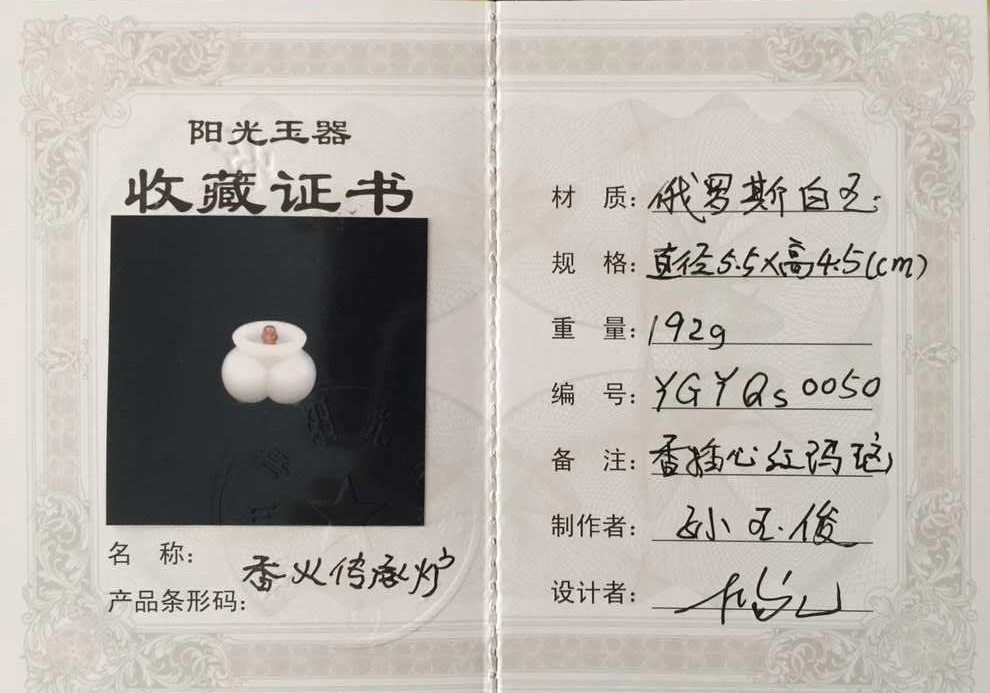 阳光玉器
收藏证书
名 称: 香义传承炉
产品条形码:
材 质: 俄罗斯白玉
规 格: 直径5.5×高4.5(cm)
重 量: 192g
编 号: YGYQs0050
备 注: 香插心红玛瑙
制作者: 孙玉俊
设计者: